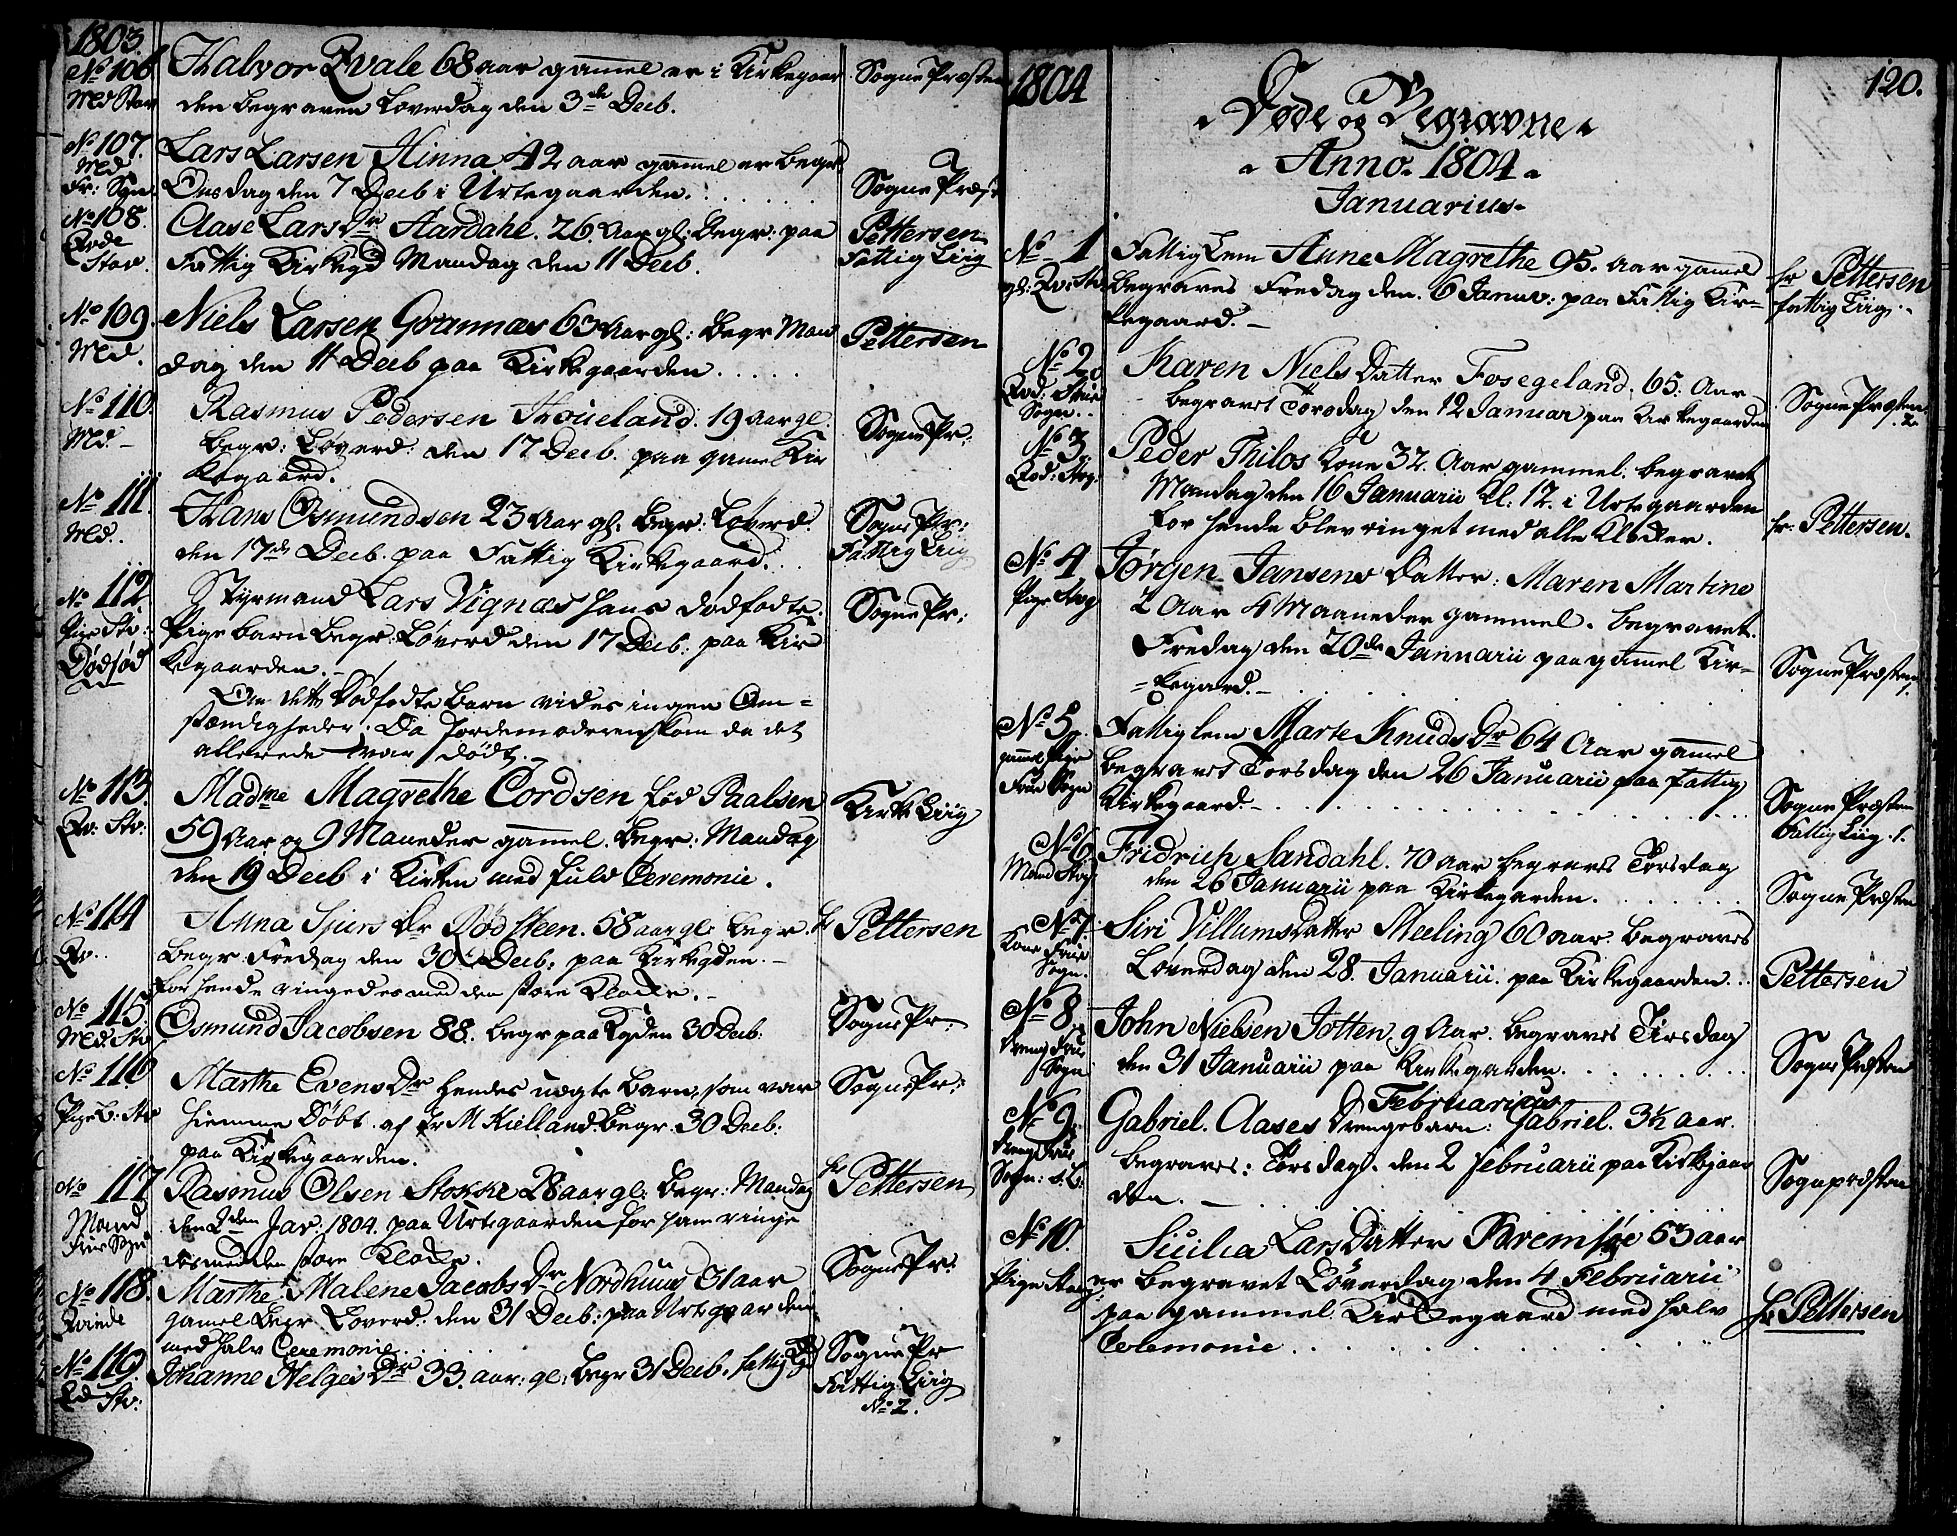 1803.
No 106
Md Stav
Halvor Qvale 68 aar gammel er i Kirkegaar
den begraven Løverdag den 3de Decb.
Sogne Præsten
No 107.
Md
Fr: Sogn
Lars Larsen Hinna 42 aar gammel er begr:
Onsdag den 7 Decb i Urtegaarden.
Sogne Præst
No 108.
Stav.
Lars Dr Aardahl. 26 Aar gl: Begr: paa
Fattig Kirkegd Mandag den 11 Decb.
Pettersen
Fattig Liig
No 109.
Md.
Niels Larsen Grannæs 63 Aar gl: Begr Man
dag den 11 Decb paa Kirkegaarden
Pettersen
No 110.
Md
Rasmus Pedersen 19 aar gl.
Begr: Løverd: den 17 Decb. paa gamel Kir
kegaard.
Sogne Pr:
No 111.
Md.
Hans Osmundsen 23 Aar gl. Begr: Løverd.
den 17de Decb. paa Fattig Kirkegaard.
Sogne Pr:
Fattig Liig
No 112
Pige Stv:
Dødfød
Styrmand Lars Vignæs hans dødfødte
Pigebarn Begr: Løverd den 17 Decb: paa Kir
kegaarden.
Om dette dødfødte Barn vides ingen Om=
stændigheder. Da Jordemoderen kom da det
allerede var død.
Sogne Pr:
No 113.
Qv: Stv:
Madme Magrethe Cordsen fød Paalsen
59 Aar og 9 Maaneder gammel. Begr: Mandag
den 19 Decb i Kirken med fuld Ceremonie.
Kirke Liig
No 114
Qv..
Anna Sjurs Dr Rødsteen. 58 aar gl: begr.
Begr: Fredag den 30 Decb: paa Kirkegden.
for hende ringedes med den store Klocke.
hr Pettersen
No 115
Md. Stv
Osmund Jacobsen 88. begr paa Kgden 30 Decb:
Sogne Pr:
No 116
Pigeb: Stv
Marthe Evens Dr hendes uægte Barn, som var
hiemme Døbt af hr M Kielland. Begr. 30 Decb:
paa Kirkegaarden.
Sogne Pr:
No 117
Mand
Frue Sogn
Rasmus Olsen Stokke 28 aar gl: begr: Mandag
den 2den Jav: 1804. paa Urtegaarden for ham ringe
des med den store Klocke.
hr Pettersen
No 118.
Qvinde
Marthe Malene Jacobs Dr Nordhuus 31 aar
gamel Begr Løverd. den 31 Decb: paa Urtegaarden
med halv Ceremonie.
Sogne Pr:
No 119.
Stv:
Johanne Helges Dr 33. aar: gl: Begr 31 Decb. fattig
Sogne Pr
Fattig Liig
No 2.
1804
120.
Døde og Begravne
Anno. 1804
Januarius
No 1
gl: Qv: Stv.
Fattiglem Anne Magrethe 95. Aar gamel
begraves Fredag den. 6 Januv: paa Fattig Kir-
kegaard.
hr Pettersen
fattig Liig
No 2.
Sogn.
Karen Niels Datter Fosegeland. 65. Aar
begravet Torsdag den 12 Januar paa Kirkegaarden
Sogne Præsten
No 3.
Peder Thilos Kone 32. Aar gammel. begravet
Mandag den 16 Januarii Kl: 12. i Urtegaarden
for hende blev ringet med alle Klocker.
hr. Pettersen.
No 4
Pige Stvg
Jørgen Jansens Datter: Maren Martine
2 Aar 4 Maaneder gammel. begravet
Fredag den 20de Januarii paa gamel Kir-
=kegaard.
Sogne Præsten
No 5
gammel Pige
Frue Sogn
Fattiglem Marte Knuds Dr 64 Aar gamel
begravet Torsdag den 26 Januarii paa fattig
Kirkegaard.
Sogne Præsten
Fattig Liig. 1.
No 6
Mand Stvg
Fridrich Sandahl. 70 aar begraves Torsdag
den 26 Januarii paa Kirkegarden.
Sogne Præsten
No 7.
Kone Frue
Sogn.
Siri Villums Datter Meeling 60 aar. begraves
Løverdag den 28. Januarii. paa Kirkegaarden.
Pettersen
No 8
Dreng Frue
Sogn
John Nielsen Jotten. 9 Aar. begraves Tirsdag
den 31 Januarii paa Kirkegarden.
Sogne Præsten
Februarius
No 9.
Dreng Frue
Sogn:
Gabriel. Aases Drengebarn: Gabriel. 3½ aar.
begraves: Torsdag. den 2 Februarii paa Kirkegaar
den.
Sognepræsten
No 10.
Pige Stavg
Sicilia Lars Datter Bremsøe 53 aar
er begravet Løverdag den 4 Februarii
paa gammel Kirkegaard med halv
Ceremonie
hr Pettersen